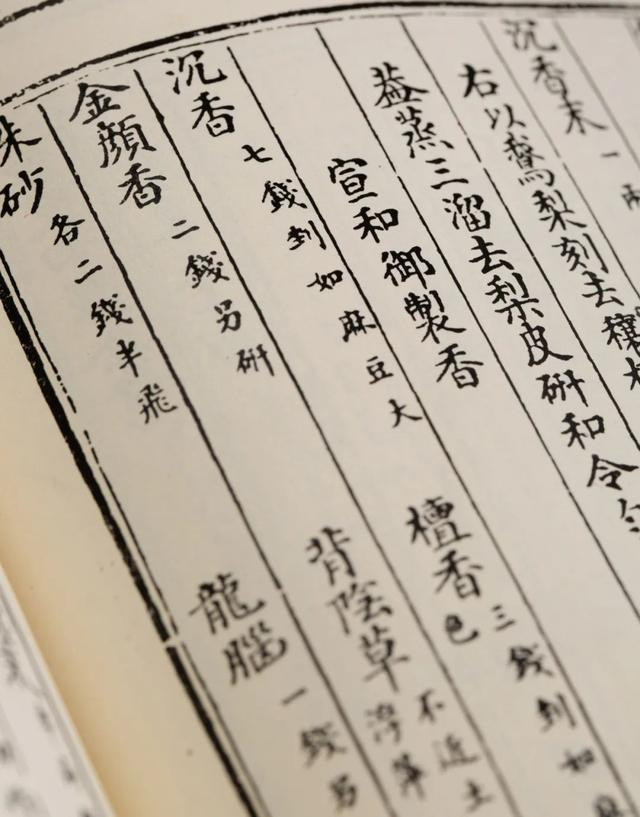 沉香末 一兩
右以鵞梨刻去穰
葢蒸三溜去梨皮研和令勻
宣和御製香
沉香 七錢剉如麻豆大 檀香 三錢剉如麻 色
金顏香 二錢另研 背陰草 不近土 浮萍
朱砂 各二錢半飛 龍腦 一錢另